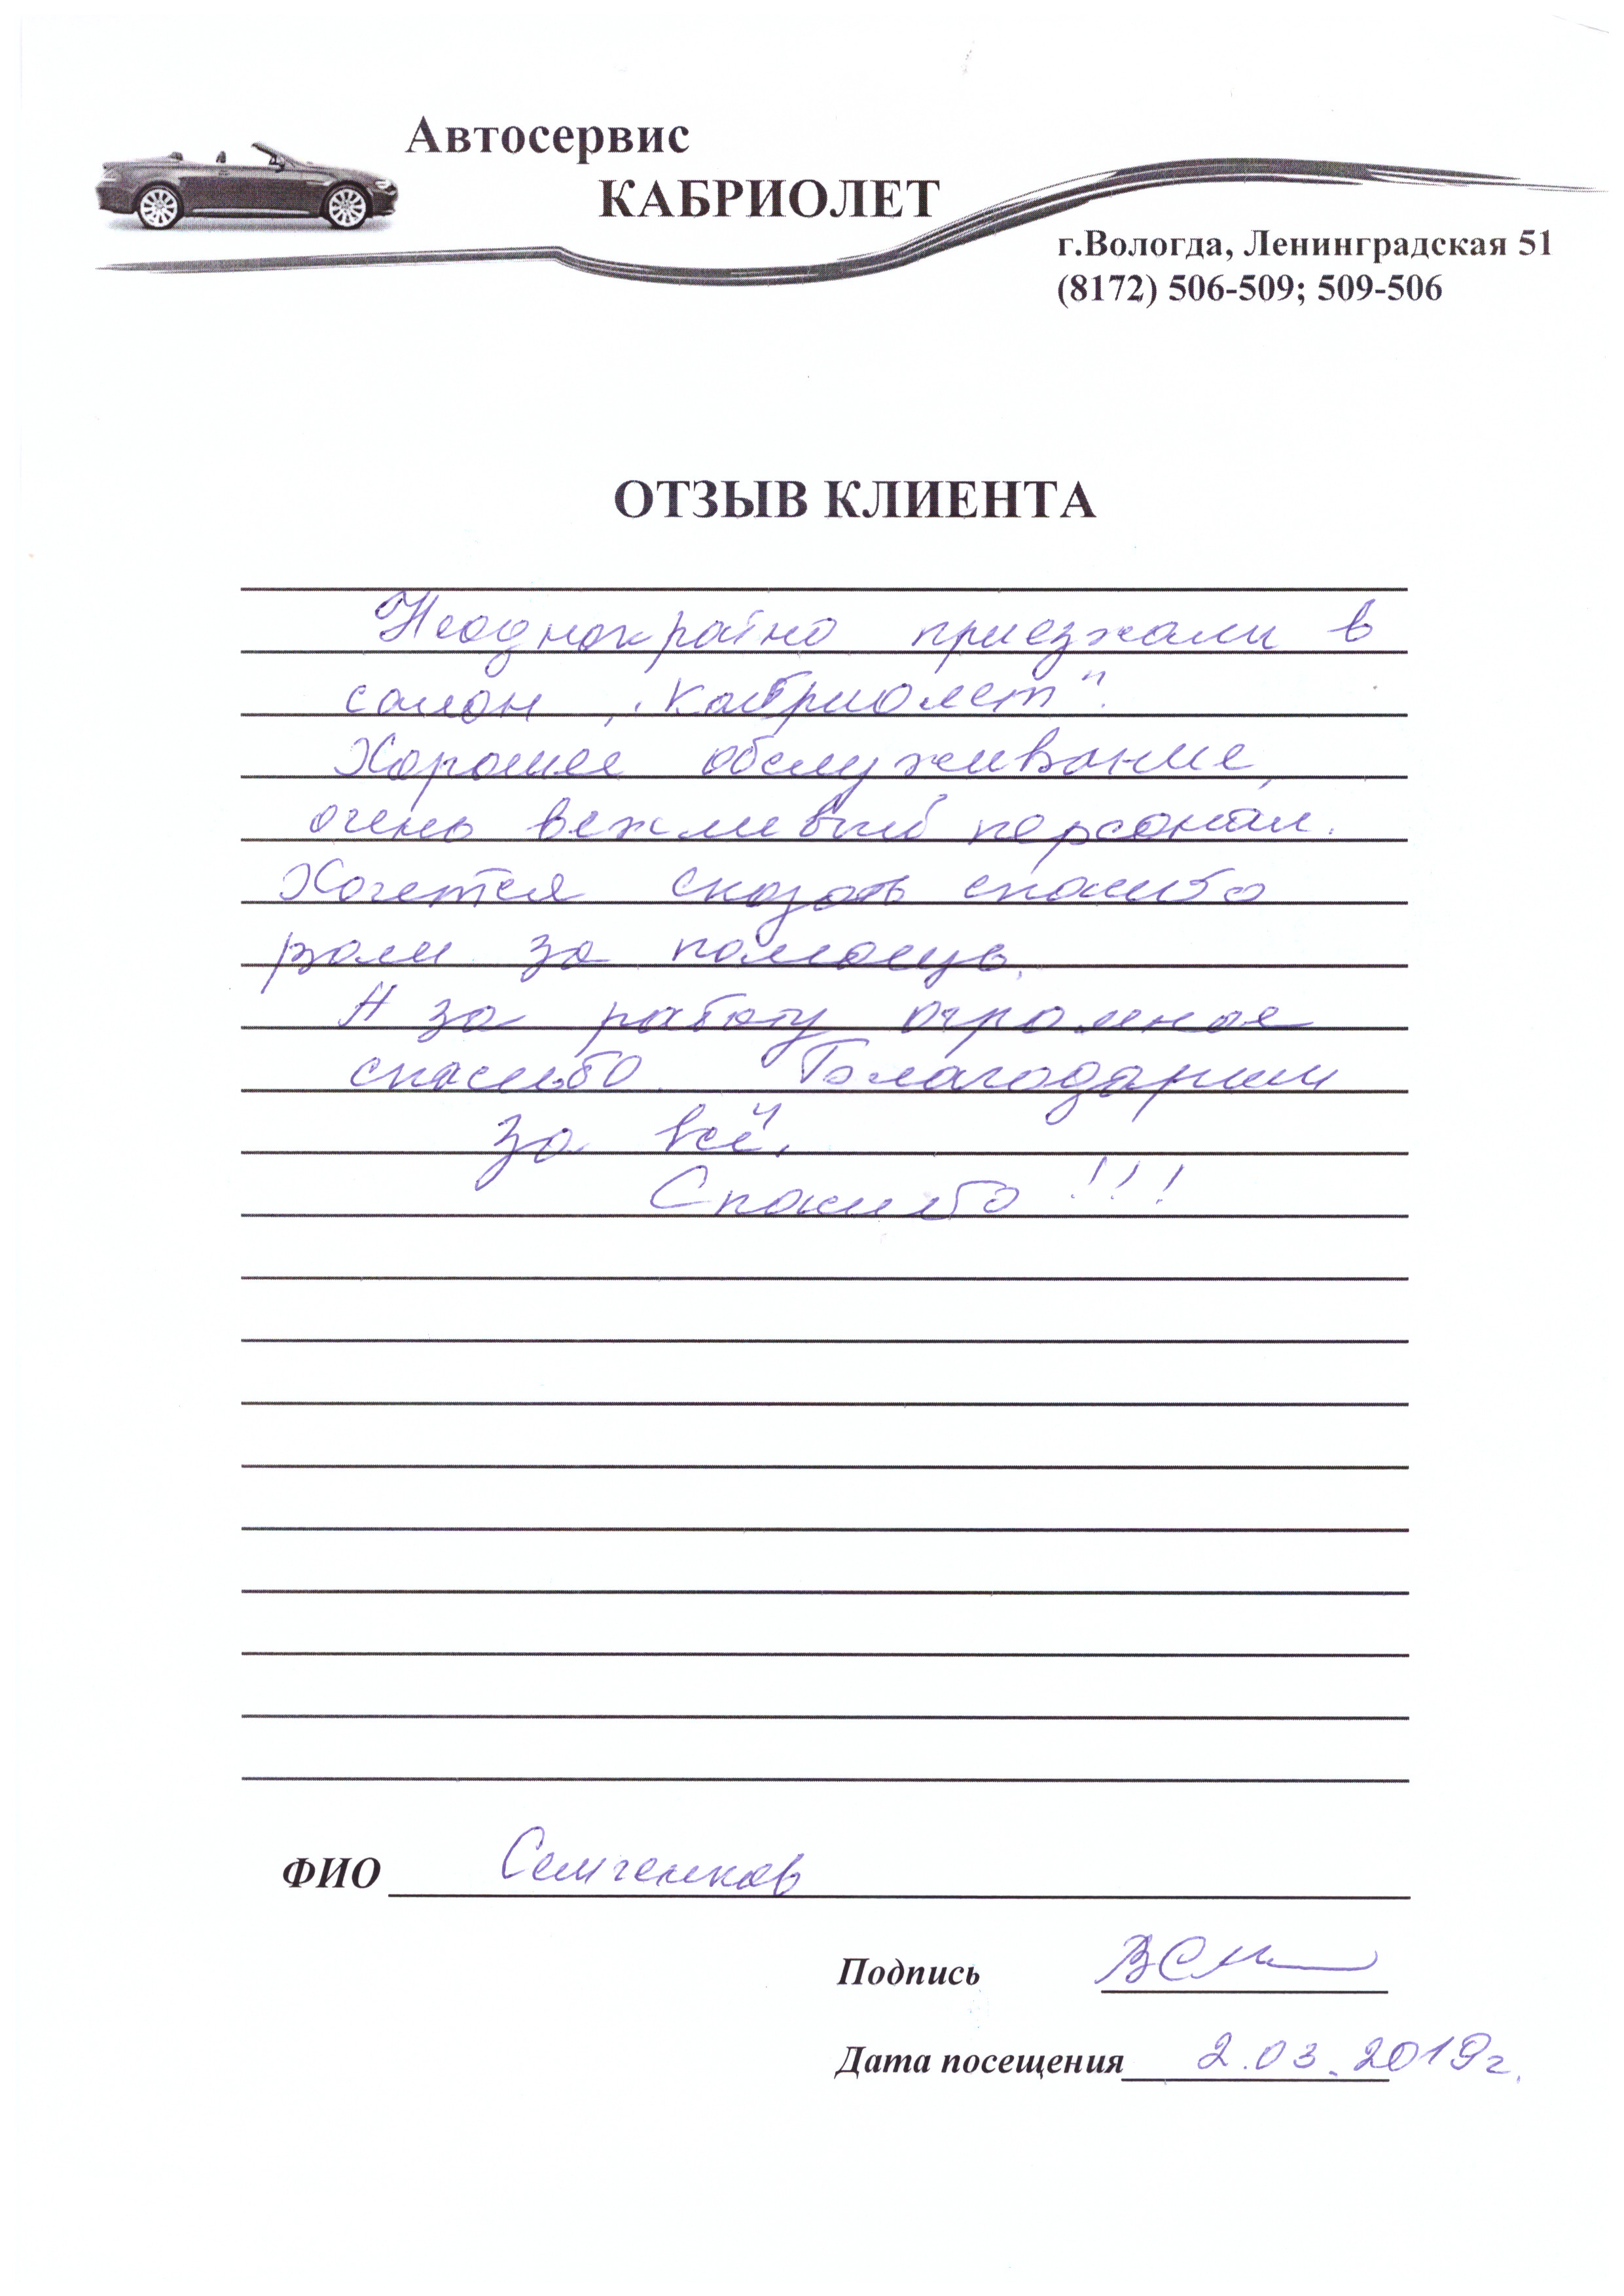 Автосервис
КАБРИОЛЕТ
г.Вологда, Ленинградская 51
(8172) 506-509; 509-506
ОТЗЫВ КЛИЕНТА
Неоднократно приезжали в
салон „Кабриолет".
Хорошее обслуживание,
очень вежливый персонал.
Хочется сказать спасибо
за помощь.
А за работу огромное
спасибо. Благодарим
за всё.
Спасибо !!!
ФИО
Подпись
Дата посещения 2.03.2019г.